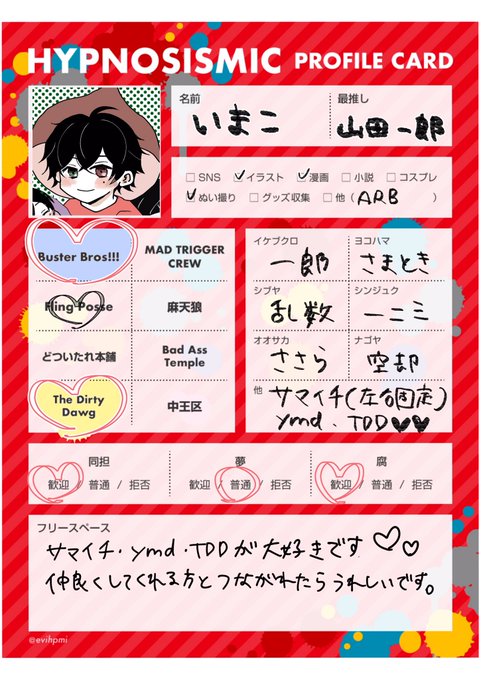 HYPNOSISMIC PROFILE CARD
名前
いまこ
最推し
山田一郎
SNS イラスト 漫画 小説 コスプレ
ぬい撮り グッズ収集 他( ARB )
Buster Bros!!!
MAD TRIGGER CREW
Fling Posse
麻天狼
どついたれ本舗
Bad Ass Temple
The Dirty Dawg
中王区
イケブクロ
一郎
ヨコハマ
さまとき
シブヤ
乱数
シンジュク
一二三
オオサカ
ささら
ナゴヤ
空却
他 サマイチ(左右固定)
ymd・TDD
同担
歓迎 / 普通 / 拒否
夢
歓迎 / 普通 / 拒否
腐
歓迎 / 普通 / 拒否
フリースペース
サマイチ・ymd・TDDが大好きです
仲良くしてくれる方とつながれたらうれしいです。
@evihpmi